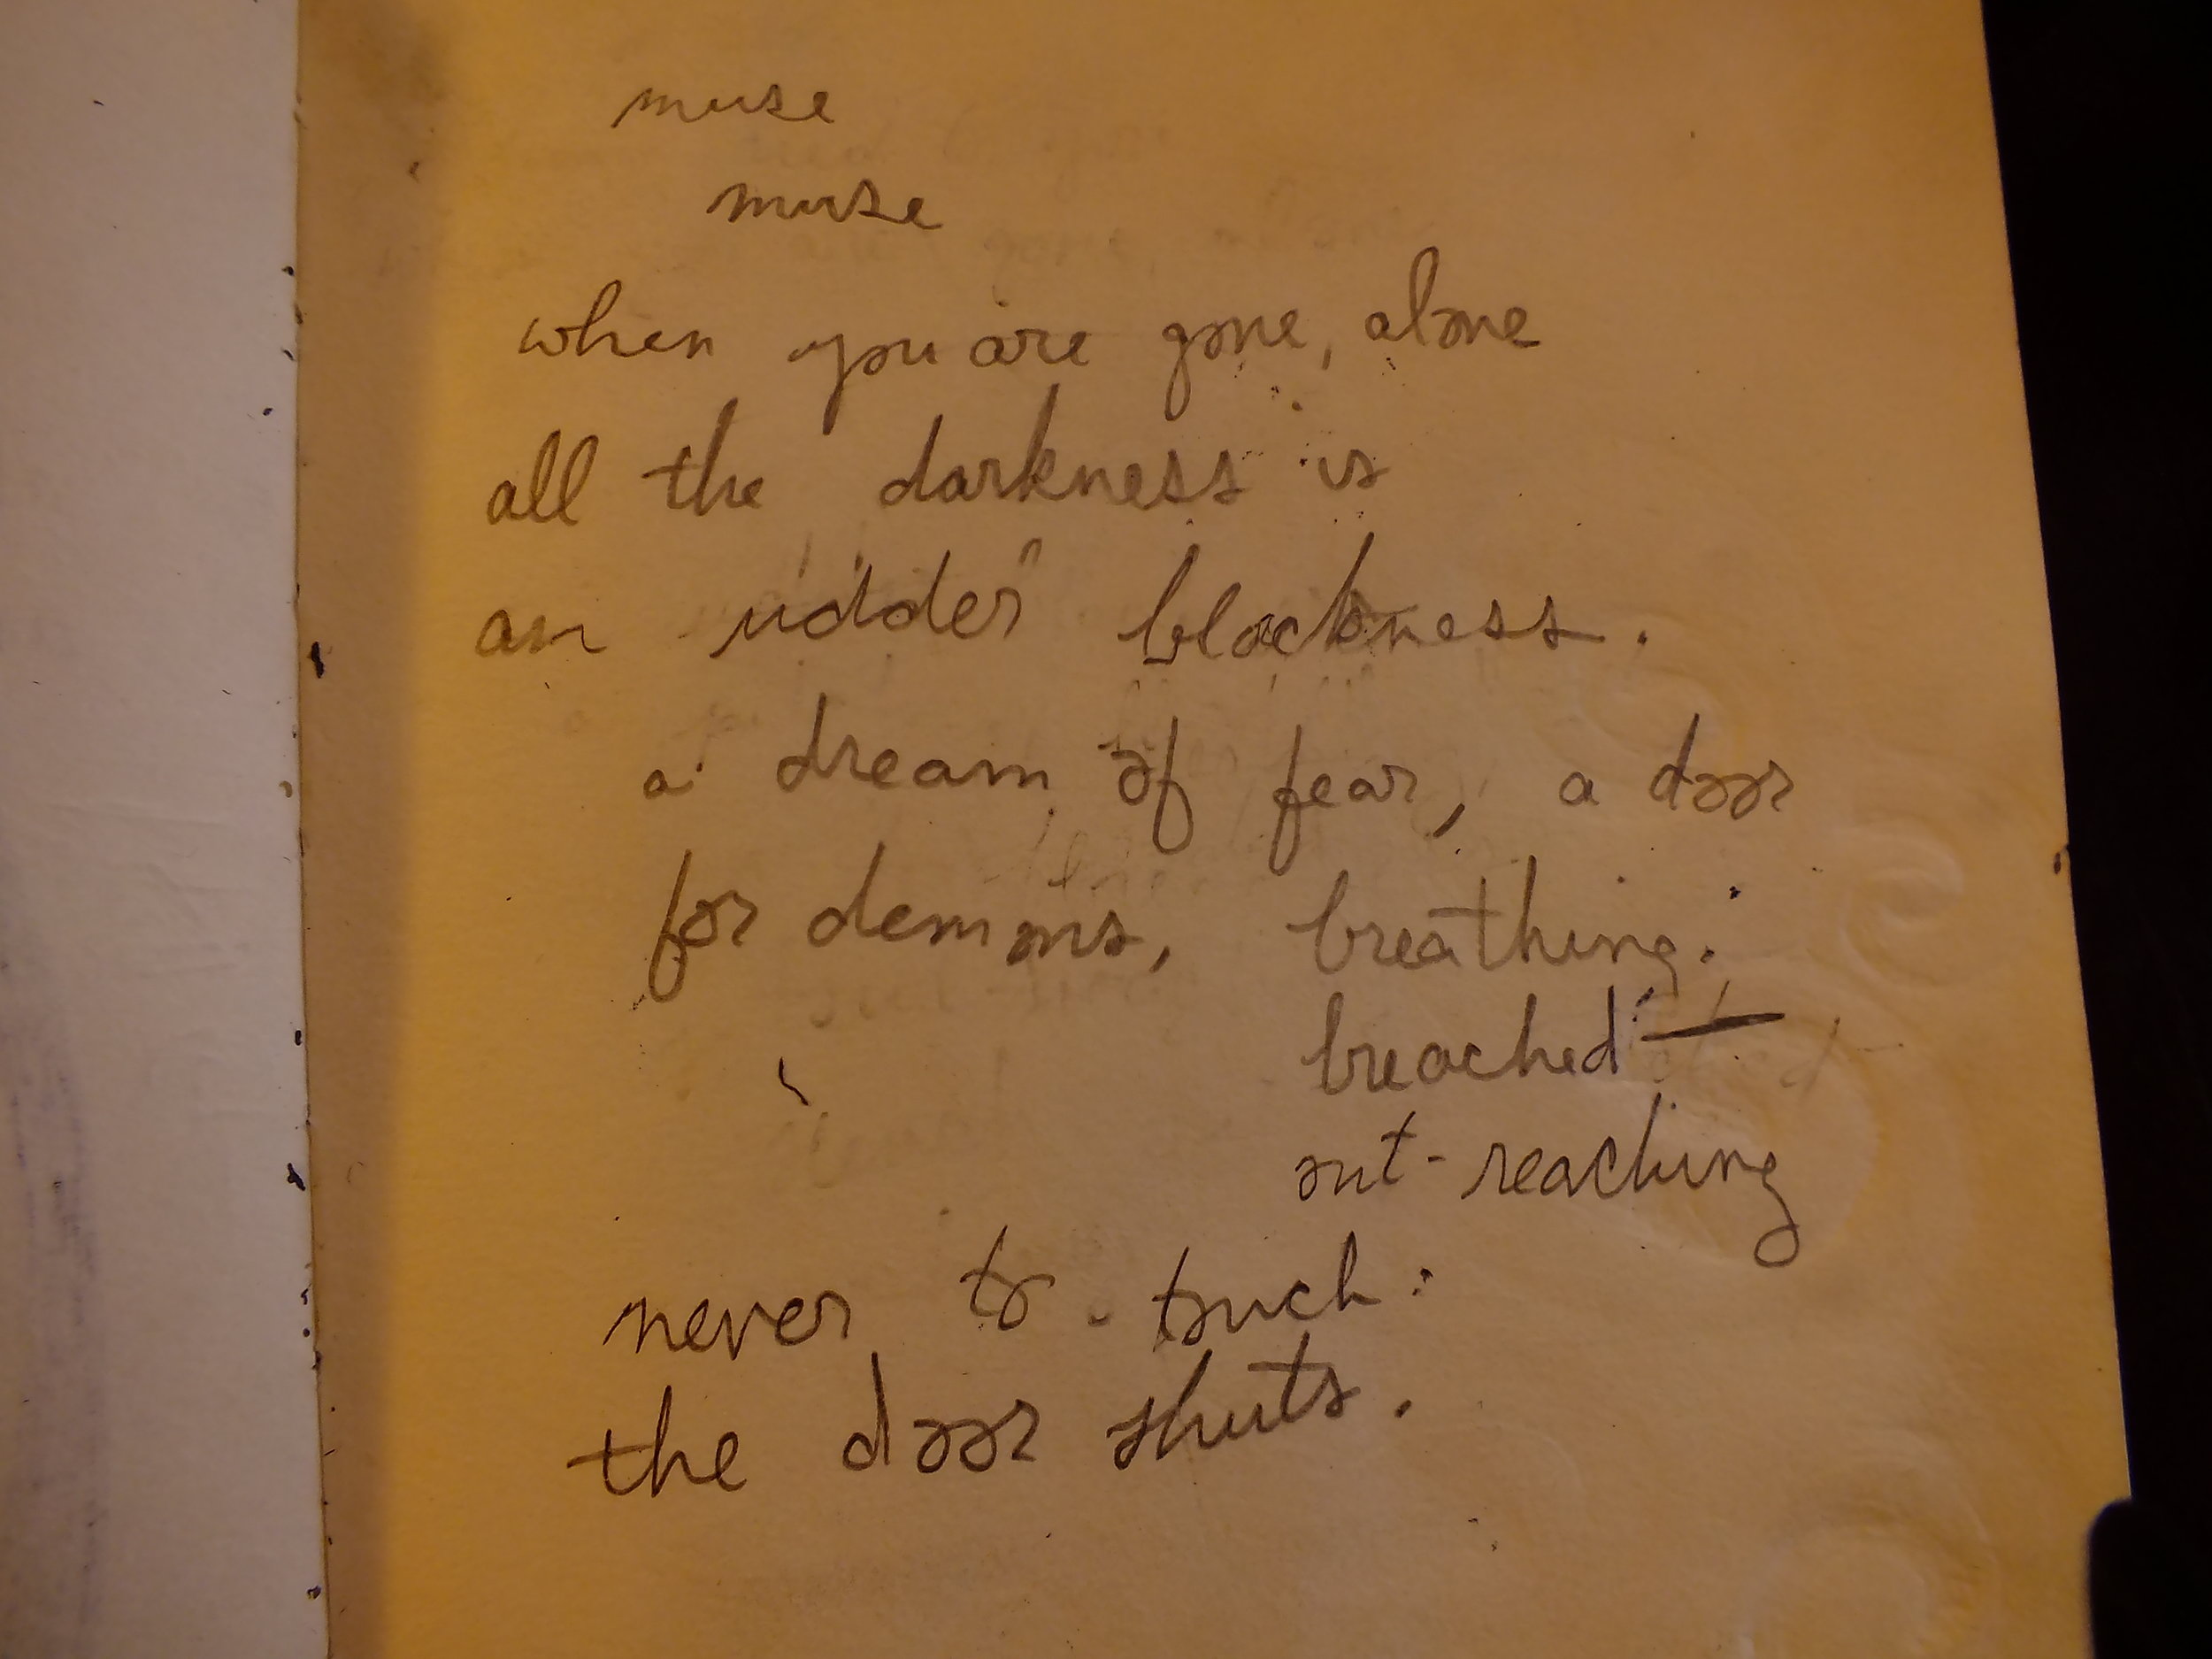 muse
muse
when you are gone, alone
all the darkness is
an "udder" blackness.
a dream of fear, a door
for demons, breathing:
breached —
out-reaching
never to touch:
the door shuts.